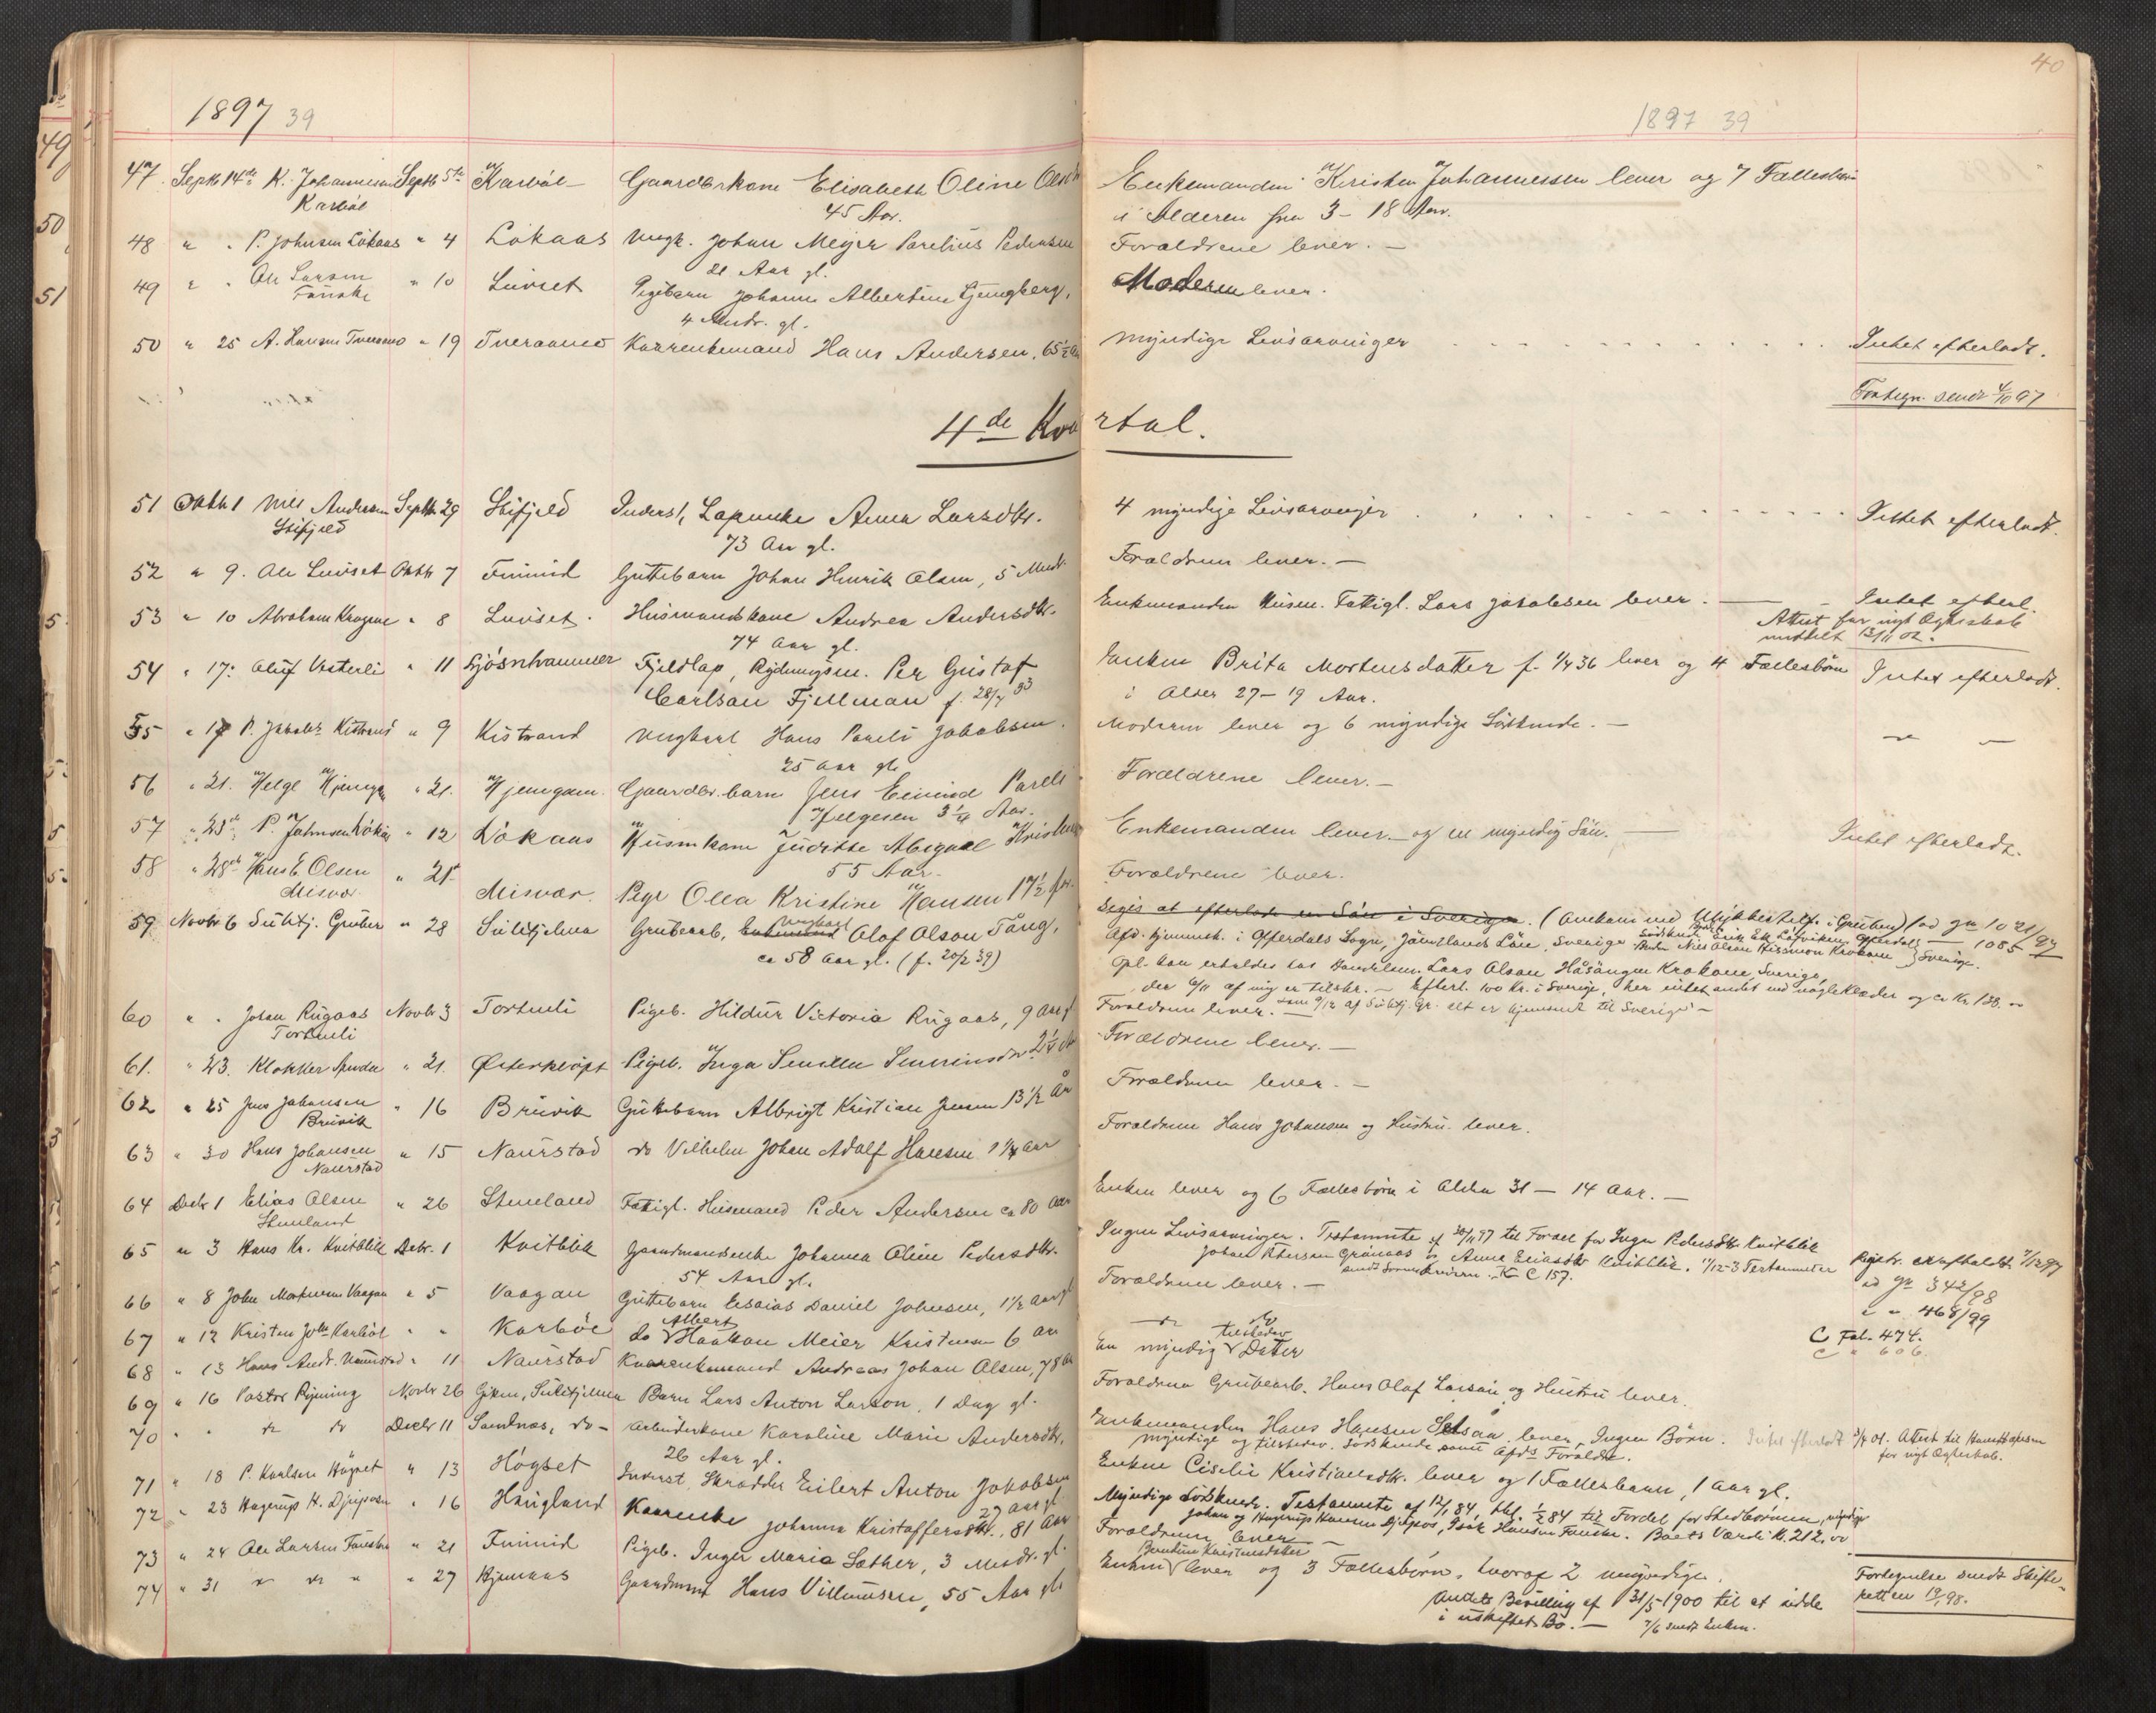 40
1897 39
1897 39
47. Septb 14de K. Johannesen Septb 5te Karbøl Gaardbrkone Elisabeth Oline Olsdtr Enkemanden Kristen Johannessen lever og 7 Fællesbørn
Karbøl 45 Aar. i Alderen fra 3-18 Aar.
48 " " P. Johnsen Løkaas " 4 Løkaas Ungk. Johan Meyer Parelius Pedersen Forældrene lever. —
21 Aar gl.
49 " " Ole Larsen " 10 Luvset Pigebarn Johanne Albertine Ljungberg, Moderen lever.
Fauske 4 Mndr. gl.
50 " 25 A. Hansen Tveraamo " 19 Tveraamo Kaarenkemand Hans Andersen, 65½ Aar Myndige Livsarvinger Intet efterladt.
Fortegn. sendt 4/10 97
4de Kvartal.
51 Oktb 1 Nils Andersen Septbr 29 Stifjeld Inderst, Lapenke Anna Larsdtr. 4 myndige Livsarvinger Intet efterladt.
Stifjeld 73 Aar gl.
52 " 9. Ole Luvset Oktb 7 Finneid Guttebarn Johan Henrik Olsen, 5 Mndr. Forældrene lever. —
53 " 10 Abraham " 8 Luvset. Husmandskone Andrea Andersdtr. Enkemanden Husm. Fattigl. Lars Jakobsen lever. — Intet efterl.
74 Aar gl. Attest for nyt Ægteskab
meddelt 13/11 02.
54 " 17. Oluf Vesterli " 11 Sjøsnhammer Fjeldlap, Per Gustaf Enken Brita Mortensdatter f. 1/4 36 lever og 4 Fællesbørn Intet efterladt.
Carlsan Fjellman f. 28/4 33 i Alder 27-19 Aar.
55 " 17 P. Jakobs. Kistrand " 9 Kistrand Ungkarl Hans Pareli Jakobsen. Moderen lever og 6 myndige Søskende. — " —
25 Aar gl.
56 " 21. Helge Hjemgam " 21. Hjemgam. Gaardbr. barn Jens Eivind Pareli Forældrene lever. —
Helgesen 3¼ Aar.
57 " 23de P. Johnsen Løkaas " 12 Løkaas Husmkone Juditte Abigael Enkemanden lever. — og en myndig Søn. — Intet efterladt.
55 Aar.
58 " 28de Hans E Olsen " 21 Misvær. Pige Olea Kristine Hansen 17½ Forældrene lever.
Misvær
59 Novbr 6 Sulitj. Gruber " 28 Sulitjelma Grubearb, Enkemand Ungkarl Olof Olson Tång, Siges at efterlade en Søn i Sverige. (Omkom ved Ulykkestilf. i Gruben) ad Jn 1021/97
ca 58 Aar gl. (f. 20/2 39) Afd. hjemmeh. i Offerdals Sogn, Jämtlands Län, Sverige. Søskende Erik Eck Løfviken, Offerdal — 1085
Broder Nils Olson Hissmon Krokom } Sverige.
Opl. kan erholdes hos Handelsm. Lars Olsan Håsängen Krokom, Sverige,
der 9/11 af mig er tilskr. — Efterl. 100 Kr. i Sverige, her intet andet end nogle Klæder og ca Kr 138. —
som 9/12 af Sulitj. Gr. alt er hjemsendt til Sverige —
60 " . Johan Rugaas Novbr 3 Tortenli Pigeb. Hildur Victoria Rugaas, 9 Aar gl Forældrene lever. —
Tortenli
61. " 23. Klokker " 21. Østerkløft Pigeb. Inga 2¼ Forældrene lever. —
62 " 25 Jens Johansen " 16 Bruvik Guttebarn Albrigt Kristian Jensen 13½ År Forældrene lever. —
Bruvik
63 " 30 Hans Johansen " 15 Naurstad do Vilhelm Johan Adolf Hansen 1¼ Aar Forældrene Hans Johansen og Hustru lever.
Naurstad
64 Decbr 1 Elias Olsen " 26 Stenland Fattigl. Husmand Peder Andersen ca 80 Aar Enken lever og 6 Fællesbørn i Alder 31 — 14 Aar. —
Stenland
65 " 3 Hans Kr. Kvitblik Decbr. 1 Kvitblik Gaardmandsenke Johanna Oline Pedersdtr. Ingen Livsarvinger. Testamente af 20/11 97 til Fordel for Inger Pedersdtr Kvitblik Registr. afholdt 7/12 97
54 Aar gl. Johan Petersen Grønaas og Anna Eliasdtr Kvitblik. 11/12-3 Testamenter ad Jn 342/98
sendt Sorenskriveren. K C 157. " " 468/99
66 " 8 John Mortensen Vaagan " 5 Vaagan Guttebarn Esaias Daniel Johnsen, 1½ Aar gl Forældrene lever. — C Fol. 474.
67 " 12 Kristen Johs Karbøl " " Karbøl do Albert Haakon Meier Kristensen 6 Aar — " — do C " 606.
68 " 13 Hans Andr. Naurstad " 11 Naurstad Kaarenkemand Andreas Johan Olsen, 78 Aar En myndig tilstedev Datter
69 " 16 Pastor Rynning Novbr 26 Giken, Sulitjelma Barn Lars Anton Larson, 1 Dag gl. Forældrene Grubearb. Hans Olof Larsan og Hustru lever.
70 " " do do Decbr 11 Sandnæs, do - Arbeiderkone Karoline Marie Andersdtr, Enkemanden Hans Hansen lever. Ingen Børn. Intet efterladt 3/4 01. Attest til Hans Hansen
26 Aar gl. myndige og tilstedev. Søskende samt Afds Forældre. for nyt Ægteskab.
71 " 18 P. Karlsen Høgset " 13 Høgset Inderst, Skrædder Eilert Anton Jakobsen Enken Cicilie Kristiansdtr. lever og 1 Fællesbarn, 1 Aar gl.
27 Aar gl.
72 " 23 Hagerup H. Djupos " 16 Haugland Kaarenke Johanna Kristoffersdtr., 81 Aar Myndige Søskende. Testamente af 12/1 84, tgl. 1/2 84 til Fordel for Stedbørnene, myndige
Johan og Hagerup Hansen Djupos, Isak Hansen Fauske. Boets Værdi K. 212,00
73 " 24 Ole Larsen Fauske " 21 Finneid Pigeb. Inger Maria Sæther, 3 Mndr. gl. Forældrene lever —
Bendine Kristensdatter
74 " 31 " do " " 27 Kjenaas Gaardmand Hans Villumsen, 55 Aar gl. Enken lever og 3 Fællesbørn, hvoraf 2 umyndige. Fortegnelse sendt Skifte-
retten 19/1 98.
Amtets Bevilling af 31/5-1900 til at sidde
i uskiftet Bo. — 7/6 sendt Enken.
49
50
51
5
5
5
5
3
5